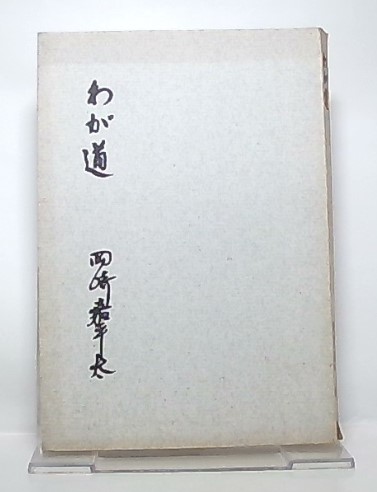 わが道
岡崎嘉平太